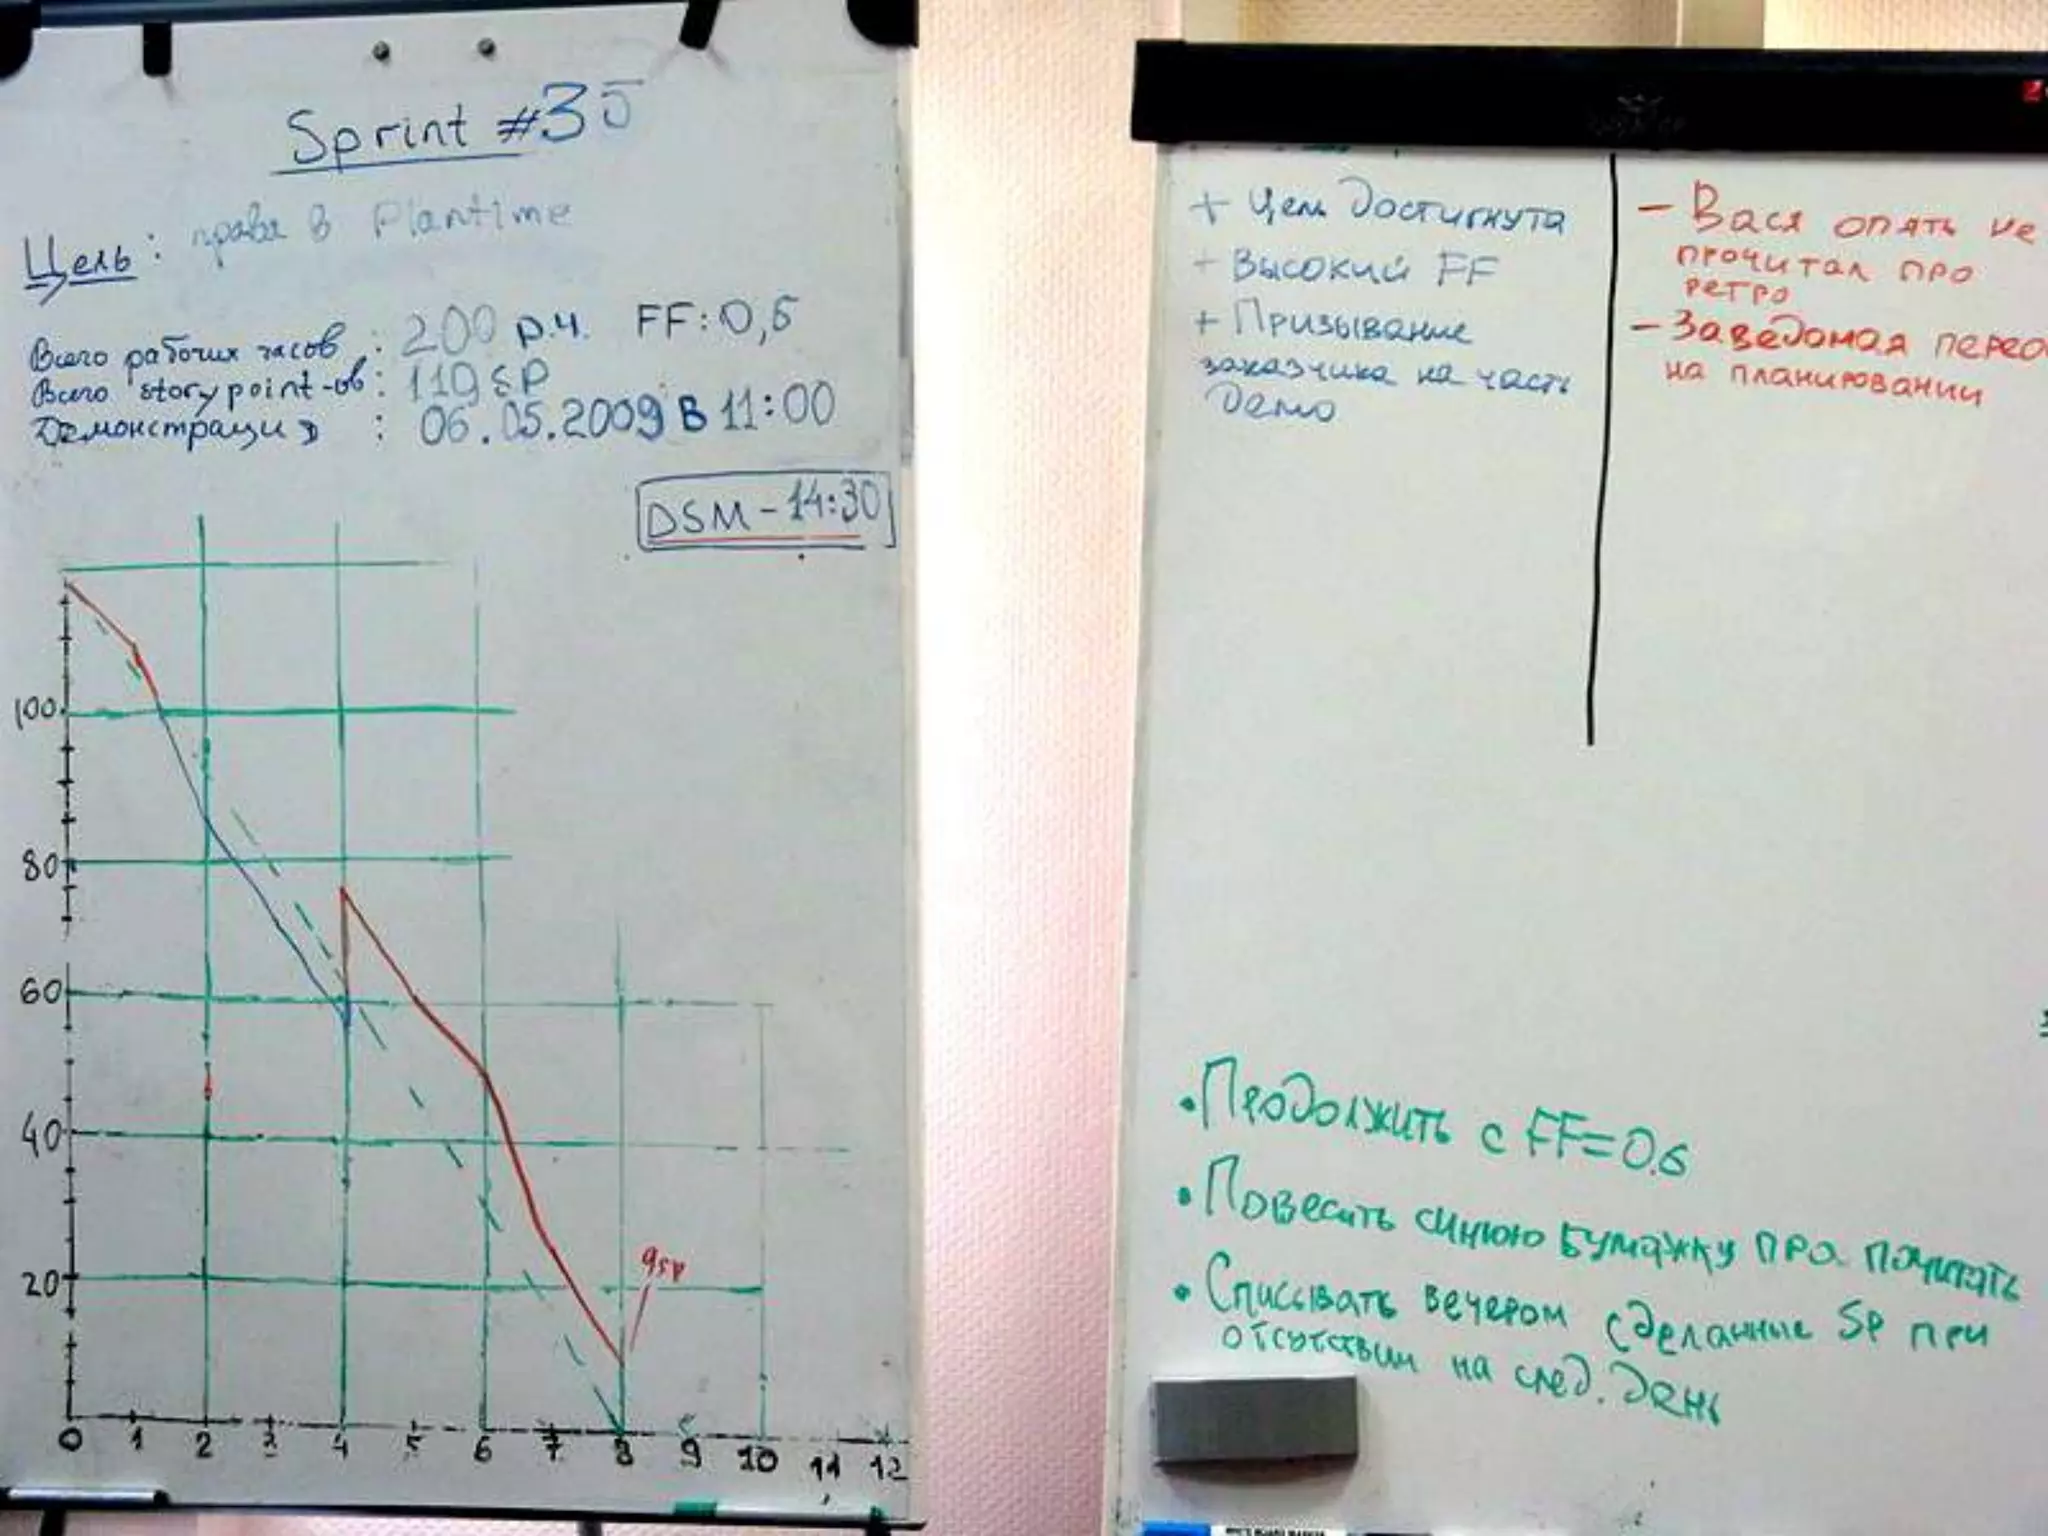 Sprint #35
Цель: права в Plantime
Всего рабочих часов : 200 р.ч. FF: 0,6
Всего story point-ов : 119 SP
Демонстрация : 06.05.2009 в 11:00
DSM - 14:30
100
80
60
40
20
9SP
0 1 2 3 4 5 6 7 8 9 10 11 12
+ Цель достигнута
+ Высокий FF
+ Призывание
заказчика на часть
Демо
- Вася опять не
прочитал про
ретро
- Заведомая
на планировании
• Продолжить с FF=0.6
• Повесить синюю бумажку про почитать
• Списывать вечером сделанные SP при
отсутствии на след. день